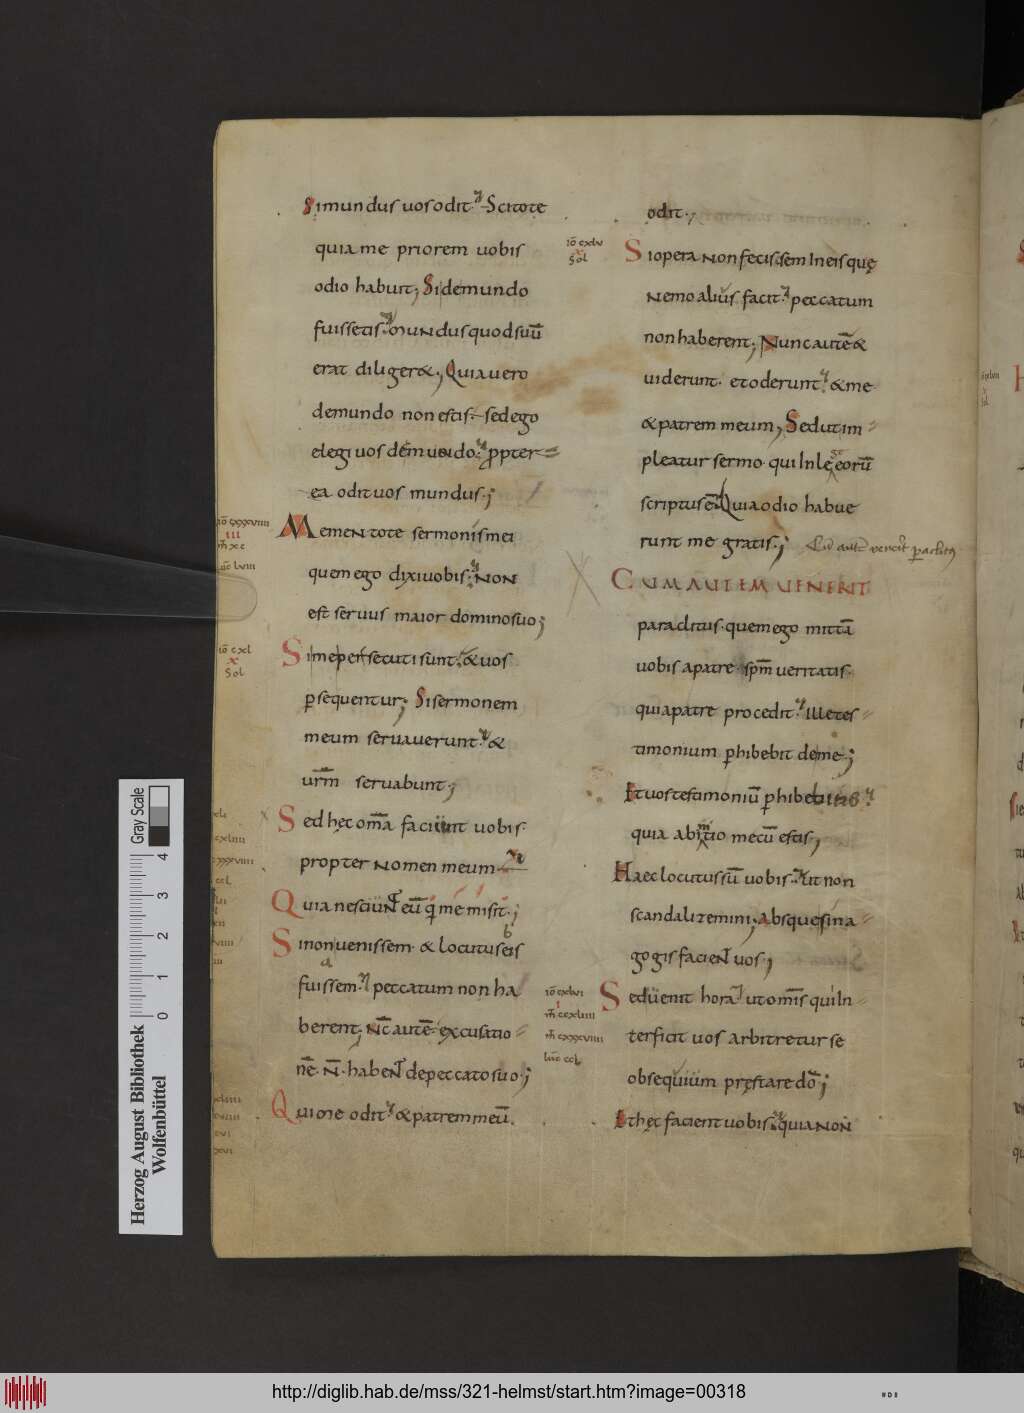 Simundus uos odit. Scitote
quia me priorem uobis
odio habuit; Si demundo
fuissetis. mundus quod suū
erat diliger&; Quia uero
demundo non estis. sed ego
elegi uos de mundo. ꝓpter
ea odit uos mundus;
Mementote sermonis mei
quem ego dixi uobis. Non
est seruus maior domino suo;
Si me persecuti sunt. & uos
ꝑsequentur; Si sermonem
meum seruauerunt. &
urm̄ seruabunt;
Sed hęc om̄a facient uobis
propter nomen meum
Quia nesciunt eū q̄ me misit;
Si non uenissem. & locutus eis
fuissem. peccatum non ha
berent; Nc̄ autē excusatio
nē. N̄. habent de peccato suo;
Qui me odit. & patrem meū.
odit;
iō cxlv
x
sol
Si opera non fecissem In eis quę
Nemo alius facit. peccatum
non haberent; Nunc autē &
uiderunt. et oderunt. & me
& patrem meum; Sed ut im
pleatur sermo. qui In lege eorū
scriptus ē. Quia odio habue
runt me gratis;
Cū aūt venerit paraclitus
CUM AUTEM UENERIT
paraclitus. quem ego mittā
uobis a patre. spm̄ ueritatis.
qui a patre procedit. Ille tes
timonium ꝑhibebit de me;
Et uos testimoniū ꝑhibebitis.
quia ab initio mecū estis;
Haec locutus sū uobis. ut non
scandalizemini; absque sina
gogis facient uos;
Sed uenit hora ut om̄is qui In
terficit uos arbitretur se
obsequium pręstare do;
Et hęc facient uobis. quia non
iō cxxxviiii
iii
m̄ xc
luc̄ lviii
iō cxl
x
Sol
iō cxlvi
i
m̄ ccxliiii
m̄ cxxxviiii
luc̄ ccl
Herzog August Bibliothek
Wolfenbüttel
Gray Scale
0 1 2 3 4
http://diglib.hab.de/mss/321-helmst/start.htm?image=00318